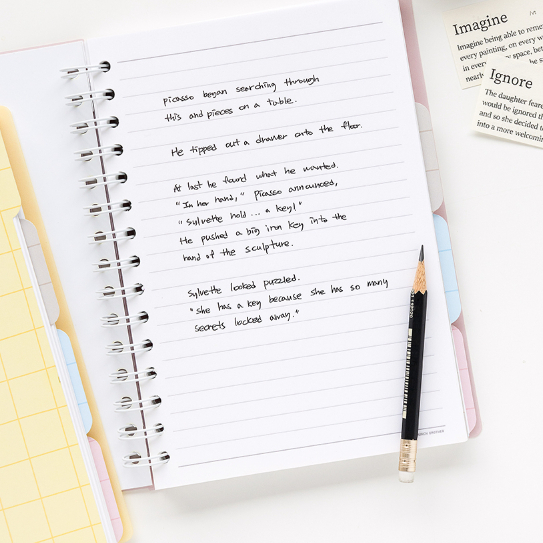 Picasso began searching through
this and pieces on a table.
He tipped out a drawer onto the floor.
At last he found what he wanted.
"In her hand," Picasso announced,
"Sylvette hold... a key!"
He pushed a big iron key into the
hand of the sculpture.
Sylvette looked puzzled.
"she has a key because she has so many
secrets locked away."
Imagine
Imagine being able to reme
every painting, on every w
in every space, bet
nearb he se
Ignore
The daughter feared
would be ignored th
and so she decided to
into a more welcomin